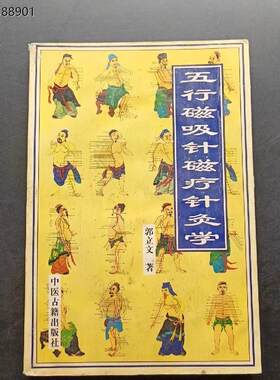 88901
五行磁吸针磁疗针灸学
郭立文 著
中医古籍出版社